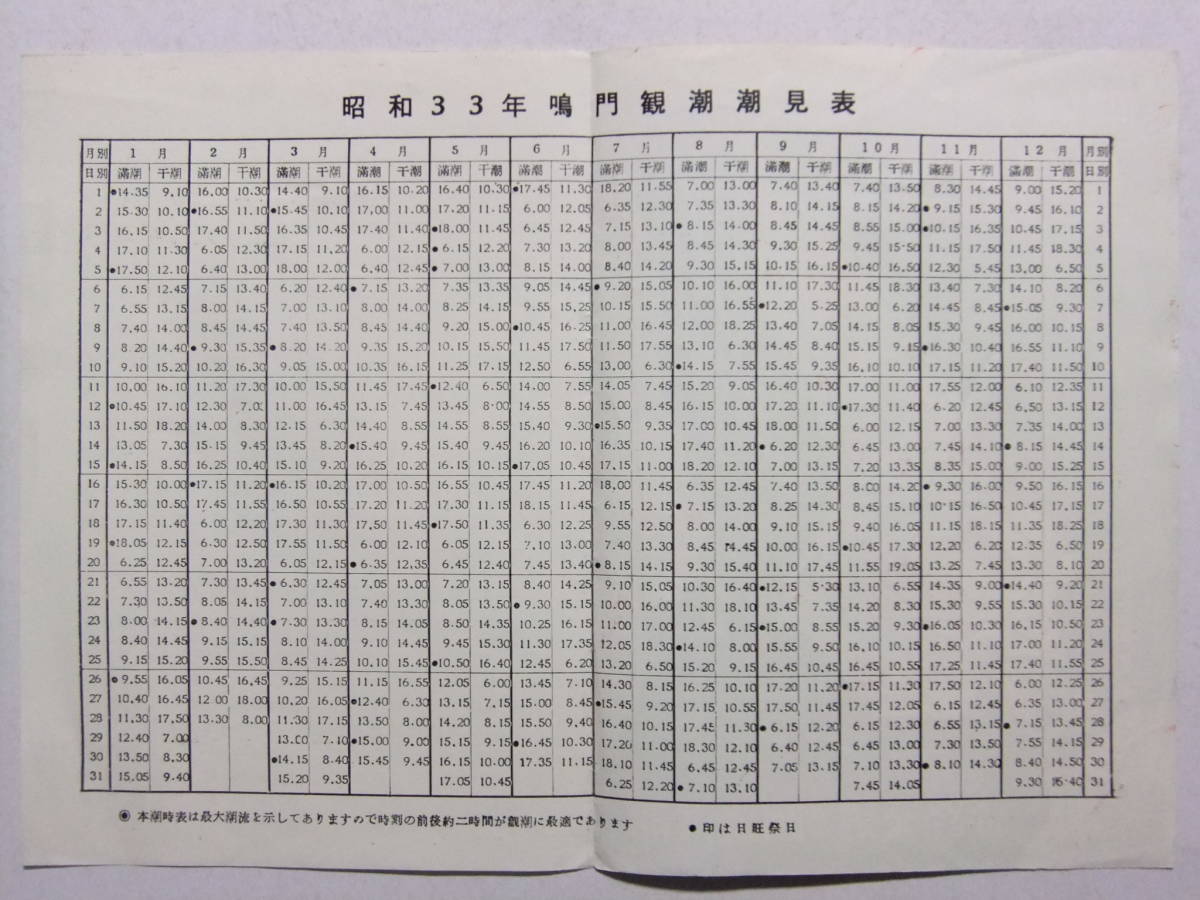 昭和33年鳴門観潮潮見表
月別 1月 2月 3月 4月 5月 6月 7月 8月 9月 10月 11月 12月 月別
日別 満潮 干潮 満潮 干潮 満潮 干潮 満潮 干潮 満潮 干潮 満潮 干潮 満潮 干潮 満潮 干潮 満潮 干潮 満潮 干潮 満潮 干潮 満潮 干潮 日別
1 ●14.35 9.10 16.00 10.30 14.40 9.10 16.15 10.20 16.40 10.30 ●17.45 11.30 18.20 11.55 7.00 13.00 7.40 13.40 7.40 13.50 8.30 14.45 9.00 15.20 1
2 15.30 10.10 ●16.55 11.10 ●15.45 10.10 17.00 11.00 17.20 11.15 6.00 12.05 6.35 12.30 7.35 13.30 8.10 14.15 8.15 14.20 ●9.15 15.30 9.45 16.10 2
3 16.15 10.50 17.40 11.50 16.35 10.45 17.40 11.40 ●18.00 11.45 6.45 12.45 7.15 13.10 ●8.15 14.00 8.45 14.45 8.55 15.00 ●10.15 16.35 10.45 17.15 3
4 17.10 11.30 6.05 12.30 17.15 11.20 6.00 12.15 ●6.15 12.20 7.30 13.20 8.00 13.45 8.45 14.30 9.30 15.25 9.45 15.50 11.45 17.50 11.45 18.30 4
5 ●17.50 12.10 6.40 13.00 18.00 12.00 6.40 12.45 ●7.00 13.00 8.15 14.00 8.40 14.20 9.30 15.15 10.15 16.15 ●10.40 16.50 12.30 5.45 13.00 6.50 5
6 6.15 12.45 7.15 13.40 6.20 12.40 ●7.15 13.20 7.35 13.35 9.05 14.45 ●9.20 15.05 10.10 16.00 11.10 17.30 11.45 18.30 13.40 7.30 14.10 8.20 6
7 6.55 13.15 8.00 14.15 7.00 13.10 8.00 14.00 8.25 14.15 9.55 15.25 10.15 15.50 11.00 16.55 ●12.20 5.25 13.00 6.20 14.45 8.45 ●15.05 9.30 7
8 7.40 14.00 8.45 14.45 7.40 13.50 8.45 14.40 9.20 15.00 ●10.45 16.25 11.00 16.45 12.00 18.25 13.40 7.05 14.15 8.05 15.30 9.45 16.00 10.15 8
9 8.20 14.40 ●9.30 15.35 ●8.20 14.20 9.35 15.20 10.15 15.50 11.45 17.50 11.50 17.55 13.10 6.30 14.45 8.40 15.15 9.15 ●16.30 10.40 16.55 11.10 9
10 9.10 15.20 10.20 16.30 9.05 15.00 10.35 16.15 11.25 17.15 12.50 6.55 13.00 6.30 ●14.15 7.55 15.45 9.35 16.10 10.10 17.15 11.20 17.40 11.50 10
11 10.00 16.10 11.20 17.30 10.00 15.50 11.45 17.45 ●12.40 6.50 14.00 7.55 14.05 7.45 15.20 9.05 16.40 10.30 17.00 11.00 17.55 12.00 6.10 12.35 11
12 ●10.45 17.10 12.30 7.00 11.00 16.45 13.15 7.45 13.45 8.00 14.55 8.50 15.00 8.45 16.15 10.00 17.20 11.10 ●17.30 11.40 6.20 12.45 6.50 13.15 12
13 11.50 18.20 14.00 8.30 12.15 6.30 14.40 8.55 14.55 8.55 15.40 9.30 ●15.50 9.35 17.00 10.45 18.00 11.50 6.00 12.15 7.00 13.30 7.35 14.00 13
14 13.05 7.30 15.15 9.45 13.45 8.20 ●15.40 9.45 15.40 9.45 16.20 10.10 16.35 10.15 17.40 11.20 ●6.20 12.30 6.45 13.00 7.45 14.10 ●8.15 14.45 14
15 ●14.15 8.50 16.25 10.40 15.10 9.20 16.25 10.20 16.15 10.15 ●17.05 10.45 17.15 11.00 18.20 12.10 7.00 13.15 7.20 13.35 8.35 15.00 9.00 15.25 15
16 15.30 10.00 ●17.15 11.20 ●16.15 10.20 17.00 10.50 16.55 10.45 17.45 11.20 18.00 11.45 6.35 12.45 7.40 13.50 8.00 14.20 ●9.30 16.00 9.50 16.15 16
17 16.30 10.50 17.45 11.55 16.50 10.55 17.20 11.20 17.30 11.15 18.15 11.45 6.15 12.15 ●7.15 13.20 8.25 14.30 8.45 15.10 10.15 16.50 10.45 17.15 17
18 17.15 11.40 6.00 12.20 17.30 11.30 17.50 11.45 ●17.50 11.35 6.30 12.25 9.55 12.50 8.00 14.00 9.10 15.15 9.40 16.05 11.15 18.15 11.35 18.25 18
19 ●18.05 12.15 6.30 12.50 17.55 11.50 6.00 12.10 6.05 12.15 7.10 13.00 7.40 13.30 8.45 14.45 10.00 16.15 ●10.45 17.30 12.20 6.20 12.35 6.50 19
20 6.25 12.45 7.00 13.20 6.05 12.15 ●6.35 12.35 6.45 12.40 7.45 13.40 ●8.15 14.15 9.30 15.40 11.10 17.45 11.55 19.05 13.25 7.45 13.30 8.10 20
21 6.55 13.20 7.30 13.45 ●6.30 12.45 7.05 13.00 7.20 13.15 8.40 14.25 9.10 15.05 10.30 16.40 ●12.15 5.30 13.10 6.55 14.35 9.00 ●14.40 9.20 21
22 7.30 13.50 8.05 14.15 7.00 13.10 7.40 13.30 8.05 13.50 ●9.30 15.15 10.00 16.00 11.30 18.10 13.45 7.35 14.20 8.30 15.30 9.55 15.30 10.15 22
23 8.00 14.15 ●8.40 14.40 ●7.30 13.30 8.15 14.05 8.50 14.35 10.25 16.15 11.00 17.00 12.45 6.15 ●15.00 8.55 15.20 9.30 ●16.05 10.30 16.15 10.50 23
24 8.40 14.45 9.15 15.15 8.10 14.00 9.10 14.45 9.45 15.30 11.30 17.35 12.05 18.30 ●14.10 8.00 15.55 9.50 16.10 10.15 16.50 11.10 17.00 11.20 24
25 9.15 15.20 9.55 15.50 8.45 14.25 10.10 15.45 ●10.50 16.40 12.45 6.20 13.20 6.50 15.20 9.15 16.45 10.45 16.45 10.55 17.25 11.45 17.40 11.55 25
26 ●9.55 16.05 10.45 16.45 9.25 15.15 11.15 16.55 12.05 6.00 13.45 7.10 14.30 8.15 16.25 10.10 17.20 11.20 ●17.15 11.30 17.50 12.10 6.00 12.25 26
27 10.40 16.45 12.00 18.00 10.20 16.05 ●12.40 6.30 13.15 7.15 15.00 8.45 ●15.45 9.20 17.15 10.55 17.50 11.45 17.45 12.05 6.15 12.45 6.35 13.00 27
28 11.30 17.50 13.30 8.00 11.30 17.15 13.50 8.00 14.20 8.15 15.50 9.40 16.40 10.15 17.45 11.30 ●6.15 12.20 6.15 12.30 6.55 13.15 ●7.15 13.45 28
29 12.40 7.00 13.00 7.10 ●15.00 9.00 15.15 9.15 ●16.45 10.30 17.20 11.00 18.30 12.10 6.40 12.45 6.45 13.00 7.30 13.50 7.55 14.15 29
30 13.50 8.30 ●14.15 8.40 15.45 9.45 16.15 10.00 17.35 11.15 18.10 11.45 6.45 12.45 7.05 13.15 7.10 13.30 ●8.10 14.30 8.40 14.50 30
31 15.05 9.40 15.20 9.35 17.05 10.45 6.25 12.20 ●7.10 13.10 7.45 14.05 9.30 15.40 31
◉ 本潮時表は最大潮流を示してありますので時刻の前後約二時間が観潮に最適であります ●印は日旺祭日